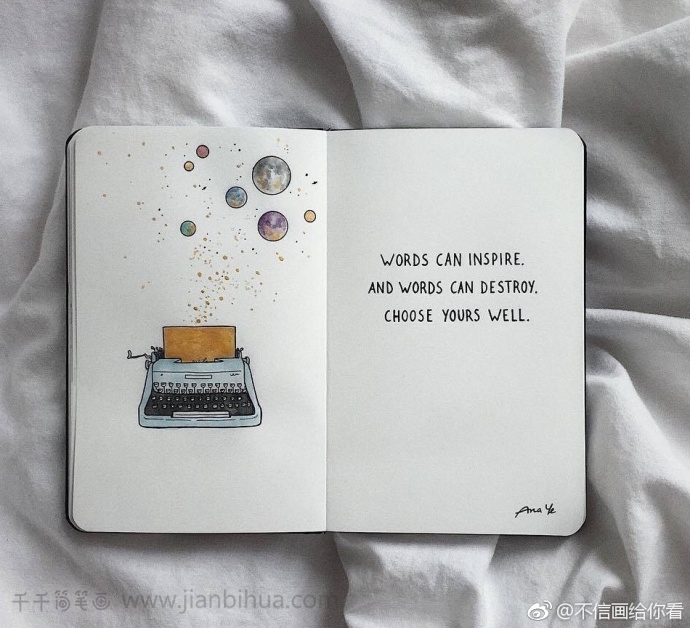 WORDS CAN INSPIRE.
AND WORDS CAN DESTROY.
CHOOSE YOURS WELL.
Ana Ye
千千简笔画 www.jianbihua.com
@不信画给你看